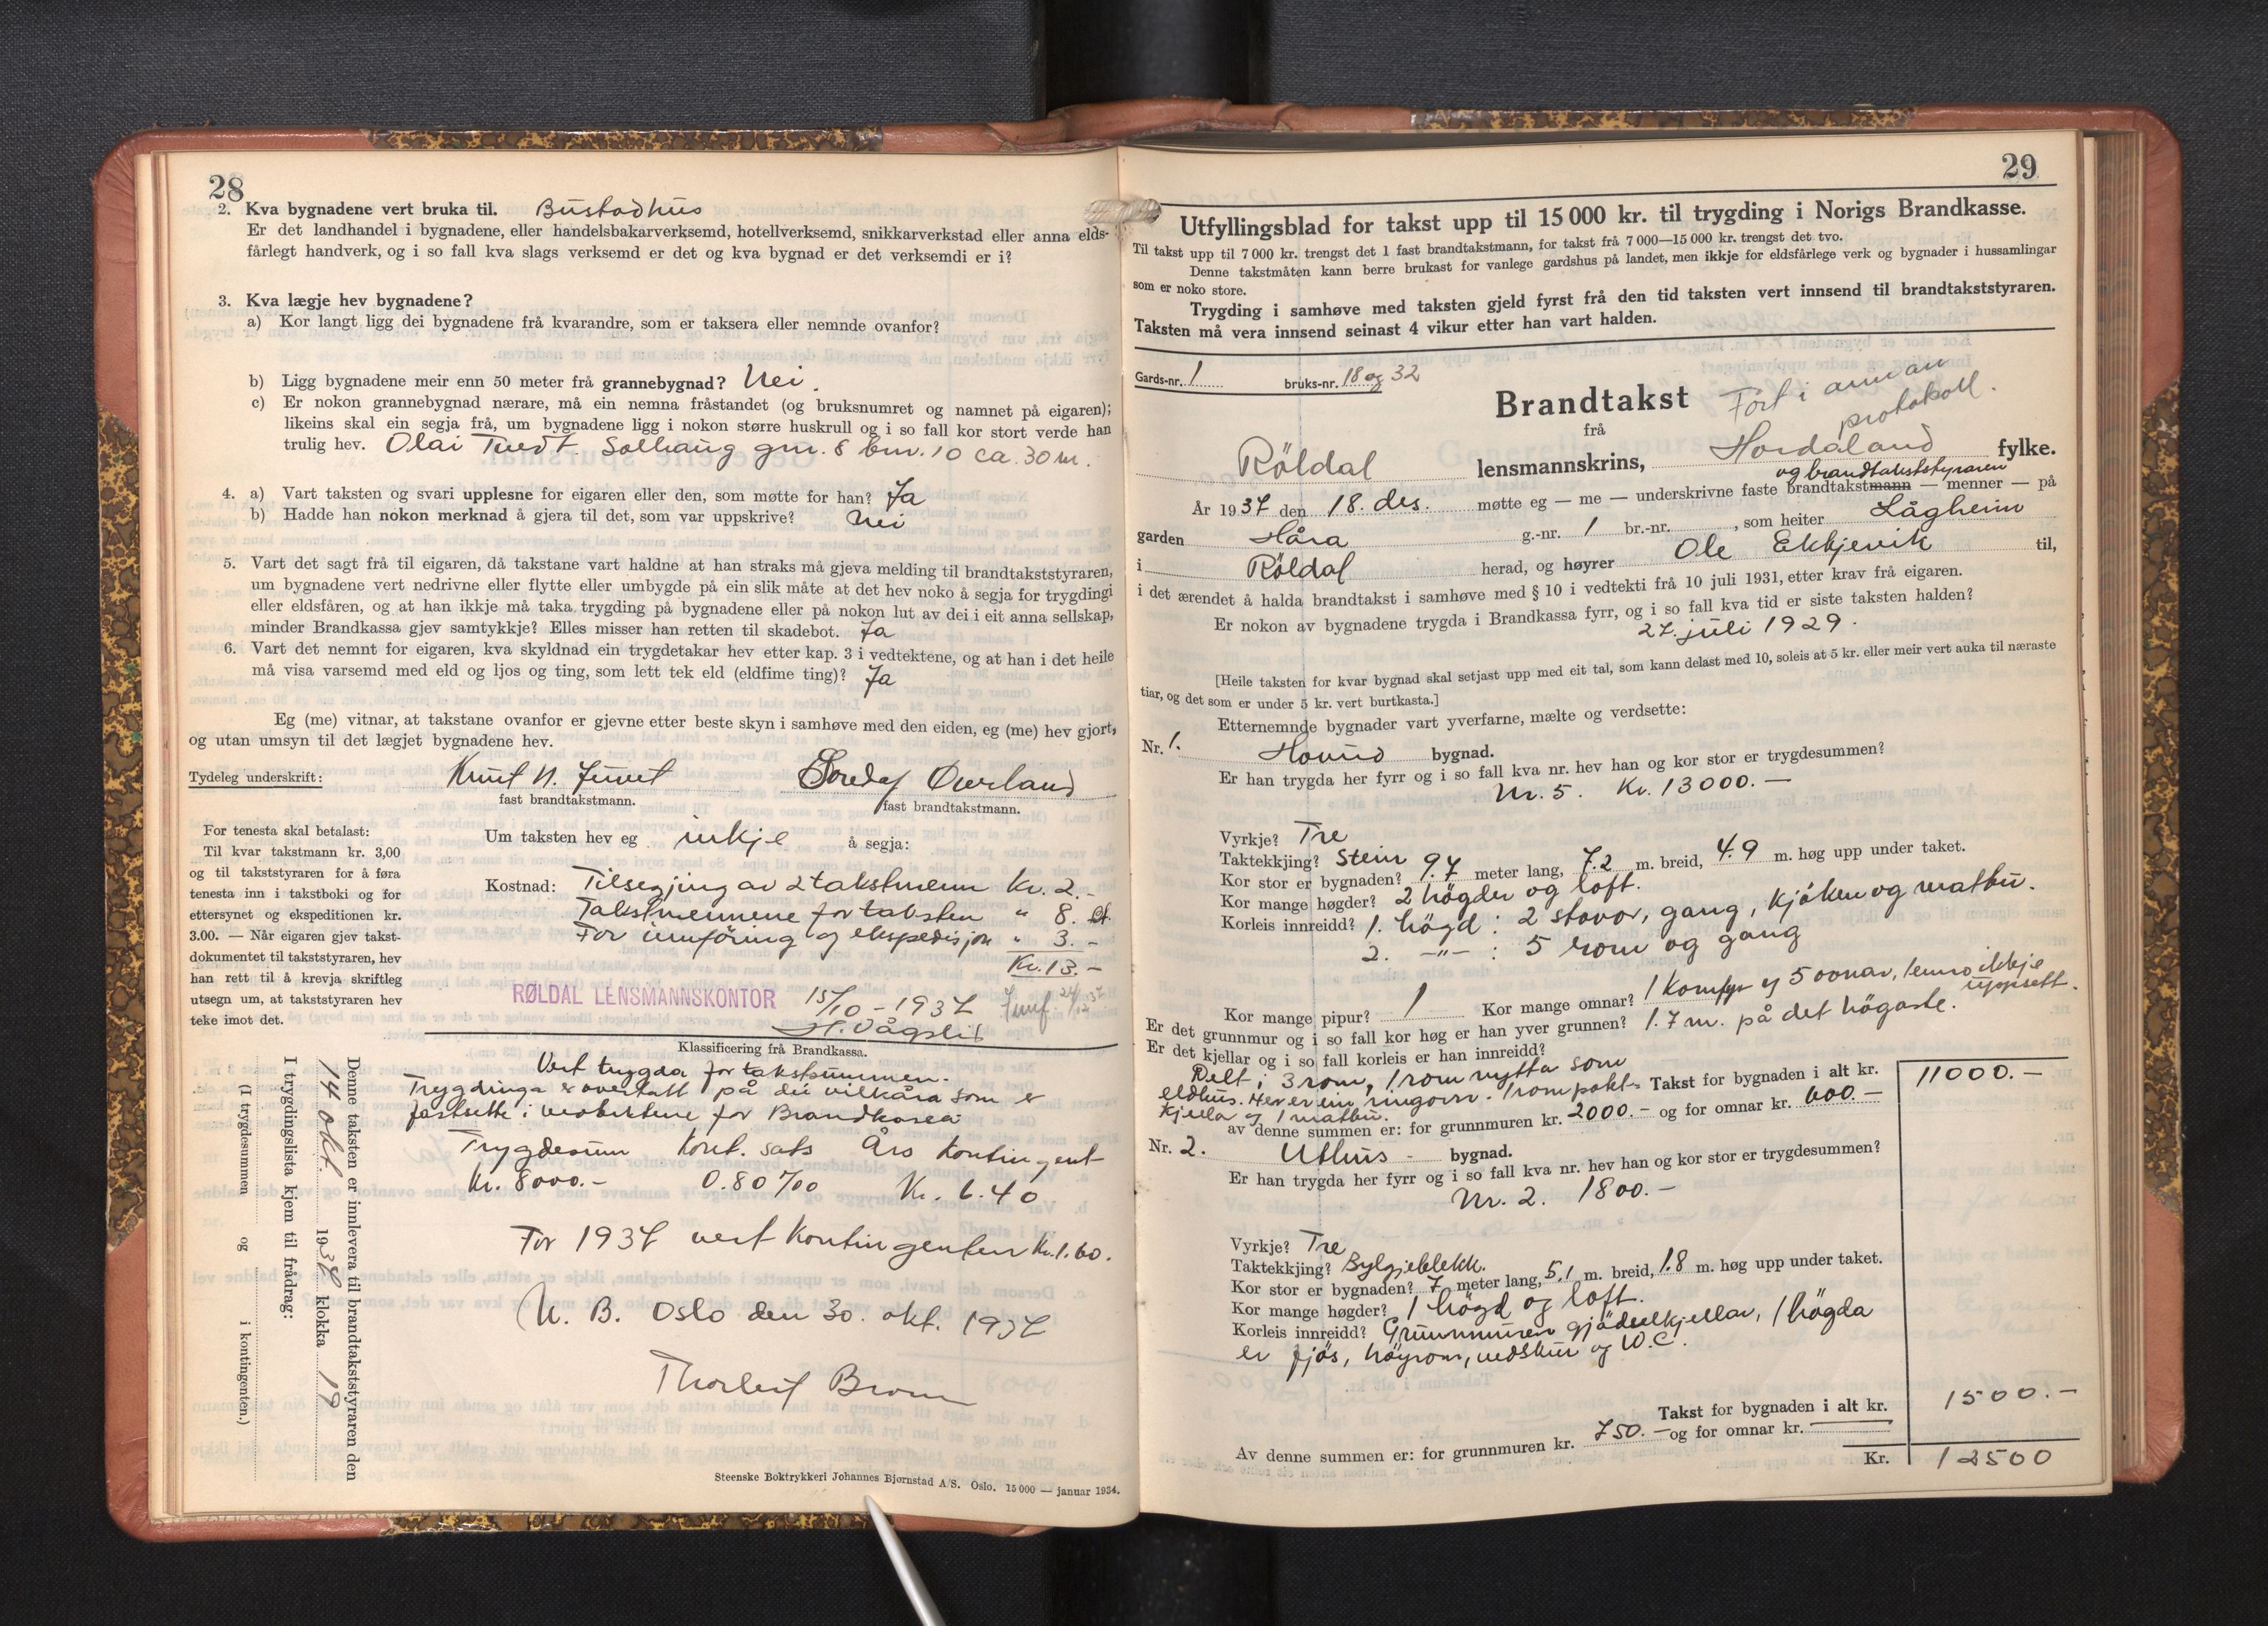 28
2. Kva bygnadene vert bruka til. Bustadhus
Er det landhandel i bygnadene, eller handelsbakarverksemd, hotellverksemd, snikkarverkstad eller anna elds-
fårlegt handverk, og i so fall kva slags verksemd er det og kva bygnad er det verksemdi er i?
3. Kva lægje hev bygnadene?
a) Kor langt ligg dei bygnadene frå kvarandre, som er taksera eller nemnde ovanfor?
b) Ligg bygnadene meir enn 50 meter frå grannebygnad? Nei.
c) Er nokon grannebygnad nærare, må ein nemna fråstandet (og bruksnumret og namnet på eigaren);
likeins skal ein segja frå, um bygnadene ligg i nokon større huskrull og i so fall kor stort verde han
trulig hev. Olai Tuedt. Solhaug gnr. 8 bnr. 10 ca. 30 m.
4. a) Vart taksten og svari upplesne for eigaren eller den, som møtte for han? Ja
b) Hadde han nokon merknad å gjera til det, som var uppskrive? Nei
5. Vart det sagt frå til eigaren, då takstane vart haldne at han straks må gjeva melding til brandtakststyraren,
um bygnadene vert nedrivne eller flytte eller umbygde på ein slik måte at det hev noko å segja for trygdingi
eller eldsfåren, og at han ikkje må taka trygding på bygnadene eller på nokon lut av dei i eit anna sellskap,
minder Brandkassa gjev samtykkje? Elles misser han retten til skadebot. Ja
6. Vart det nemnt for eigaren, kva skyldnad ein trygdetakar hev etter kap. 3 i vedtektene, og at han i det heile
må visa varsemd med eld og ljos og ting, som lett tek eld (eldfime ting)? Ja
Eg (me) vitnar, at takstane ovanfor er gjevne etter beste skyn i samhøve med den eiden, eg (me) hev gjort,
og utan umsyn til det lægjet bygnadene hev.
Tydeleg underskrift: Knut N. Juvet Overland
fast brandtakstmann. fast brandtakstmann.
For tenesta skal betalast:
Til kvar takstmann kr. 3,00
og til takststyraren for å føra
tenesta inn i takstboki og for
ettersynet og ekspeditionen kr.
3.00. — Når eigaren gjev takst-
dokumentet til takststyraren, hev
han rett til å krevja skriftleg
utsegn um, at takststyraren hev
teke imot det.
Um taksten hev eg inkje å segja:
Kostnad: Tilsegjing av 2 takstmenn Kr. 2.-
Takstmennene for taksten " 8.
For innföring og ekspedisjon " 3.-
Kr. 13.-
RØLDAL LENSMANNSKONTOR 15/10 - 1937
H. Vågslid
Klassificering frå Brandkassa.
Vert trygda for takstsummen.
Trygdinga er overtatt på dei vilkåra som er
fastsette i vedtektene for Brandkassa
Trygdesum Kont. sats Års kontingent
Kr. 8000.- 0.80 ‰ Kr. 6.40
For 1937 vert kontingenten Kr. 1.60.
N. B. Oslo den 30. okt. 1937
Denne taksten er innlevera til brandtakststyraren den
14 okt. 1937 klokka 19
I trygdingslista kjem til frådrag:
(I trygdesummen og i kontingenten.)
Steenske Boktrykkeri Johannes Bjørnstad A/S. Oslo. 15 000 — januar 1934.
29
Utfyllingsblad for takst upp til 15 000 kr. til trygding i Norigs Brandkasse.
Til takst upp til 7 000 kr. trengst det 1 fast brandtakstmann, for takst frå 7 000—15 000 kr. trengst det tvo.
Denne takstmåten kann berre brukast for vanlege gardshus på landet, men ikkje for eldsfårlege verk og bygnader i hussamlingar
som er noko store.
Trygding i samhøve med taksten gjeld fyrst frå den tid taksten vert innsend til brandtakststyraren.
Taksten må vera innsend seinast 4 vikur etter han vart halden.
Gards-nr. 1 bruks-nr. 18 og 32
Brandtakst Fört i annan
protokoll.
frå
Röldal lensmannskrins, Hordaland fylke.
og brandtakststyraren
År 1937 den 18. des. møtte eg — me — underskrivne faste brandtakstmann — menner — på
garden Håra g.-nr. 1 br.-nr. , som heiter Lågheim
i Röldal herad, og høyrer Ole Ekkjevik til,
i det ærendet å halda brandtakst i samhøve med § 10 i vedtekti frå 10 juli 1931, etter krav frå eigaren.
Er nokon av bygnadene trygda i Brandkassa fyrr, og i so fall kva tid er siste taksten halden?
27. juli 1929.
[Heile taksten for kvar bygnad skal setjast upp med eit tal, som kann delast med 10, soleis at 5 kr. eller meir vert auka til næraste
tiar, og det som er under 5 kr. vert burtkasta.]
Etternemnde bygnader vart yverfarne, mælte og verdsette:
Nr. 1. Hovud bygnad.
Er han trygda her fyrr og i so fall kva nr. hev han og kor stor er trygdesummen?
Nr. 5. Kr. 13000.—
Vyrkje? Tre
Taktekkjing? Stein
Kor stor er bygnaden? 9.7 meter lang, 7.2 m. breid, 4.9 m. høg upp under taket.
Kor mange høgder? 2 högder og loft.
Korleis innreidd? 1. högd: 2 stovor, gang, kjöken og matbu.
2. -"- : 5 rom og gang
Kor mange pipur? 1 Kor mange omnar? 1 Komfyr og 5 oonar, 1 enno ikkje
uppsett.
Er det grunnmur og i so fall kor høg er han yver grunnen? 1.7 m. på det högaste.
Er det kjellar og i so fall korleis er han innreidd?
Delt i 3 rom, 1 rom nytta som
eldhus. Her er ein ringovn. 1 rom potet- Takst for bygnaden i alt kr. 11000.—
kjella og 1 matbu.
av denne summen er: for grunnmuren kr. 2000.- og for omnar kr. 600.—
Nr. 2. Uthus - bygnad.
Er han trygda her fyrr og i so fall kva nr. hev han og kor stor er trygdesummen?
Nr. 2. 1800.—
Vyrkje? Tre
Taktekkjing? Bylgjeblekk.
Kor stor er bygnaden? 7 meter lang, 5.1 m. breid, 1.8 m. høg upp under taket.
Kor mange høgder? 1 högd og loft.
Korleis innreidd? Grunnmuren gjödselkjellar, 1 högda
er fjös, höyrom, vedskur og W.C.
Takst for bygnaden i alt kr. 1500.—
Av denne summen er: for grunnmuren kr. 750.— og for omnar kr.
Kr. 12500